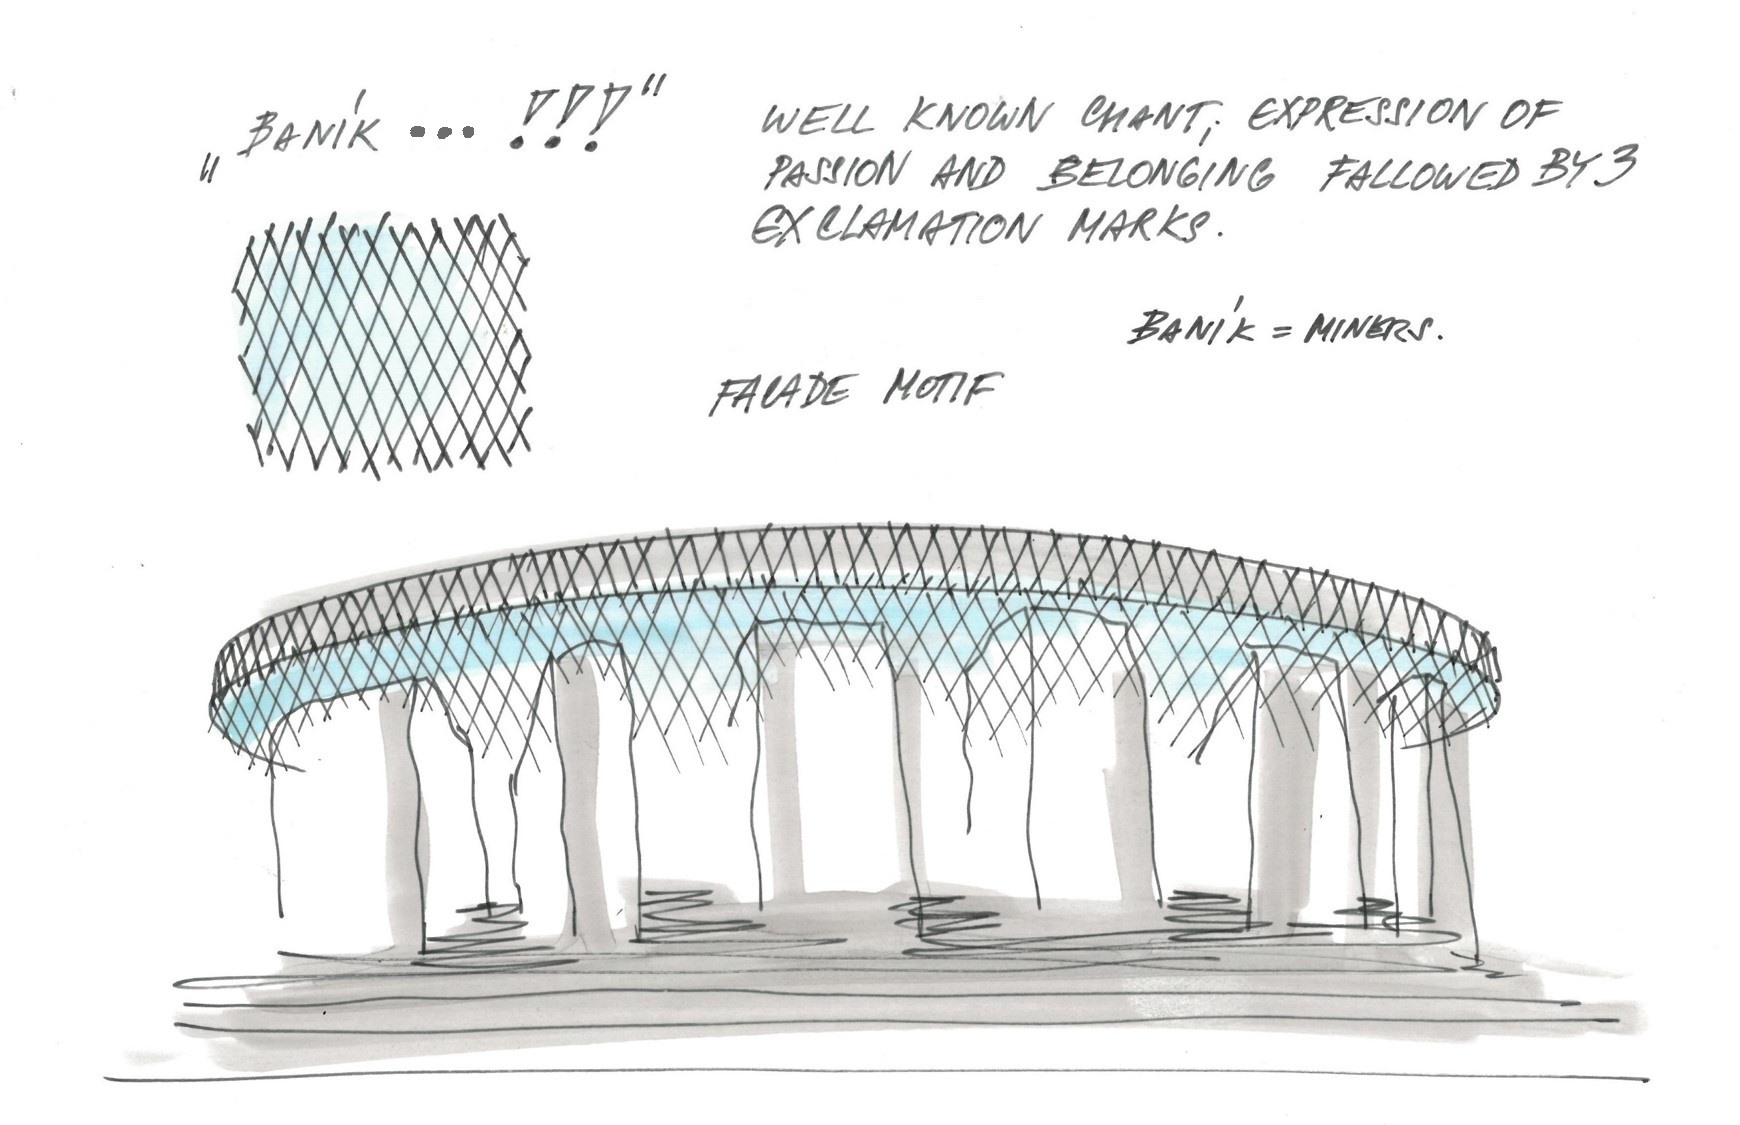 „BANÍK ... !!!"
WELL KNOWN CHANT; EXPRESSION OF
PASSION AND BELONGING FALLOWED BY 3
EXCLAMATION MARKS.
BANÍK = MINERS.
FACADE MOTIF